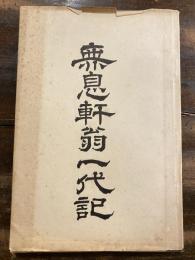 無息軒翁一代記